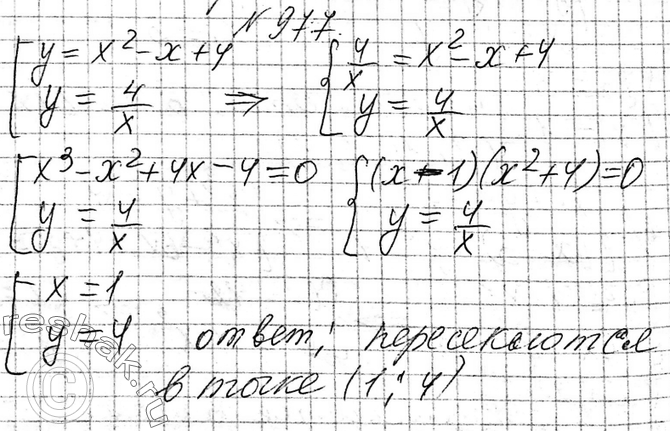 N 977.
{ y = x² - x + 4    { 4/x = x² - x + 4
{ y = 4/x    ⇒    { y = 4/x
{ x³ - x² + 4x - 4 = 0    { (x - 1)(x² + 4) = 0
{ y = 4/x    { y = 4/x
{ x = 1
{ y = 4    ответ: пересекаются
в точке (1; 4)
©reshak.ru